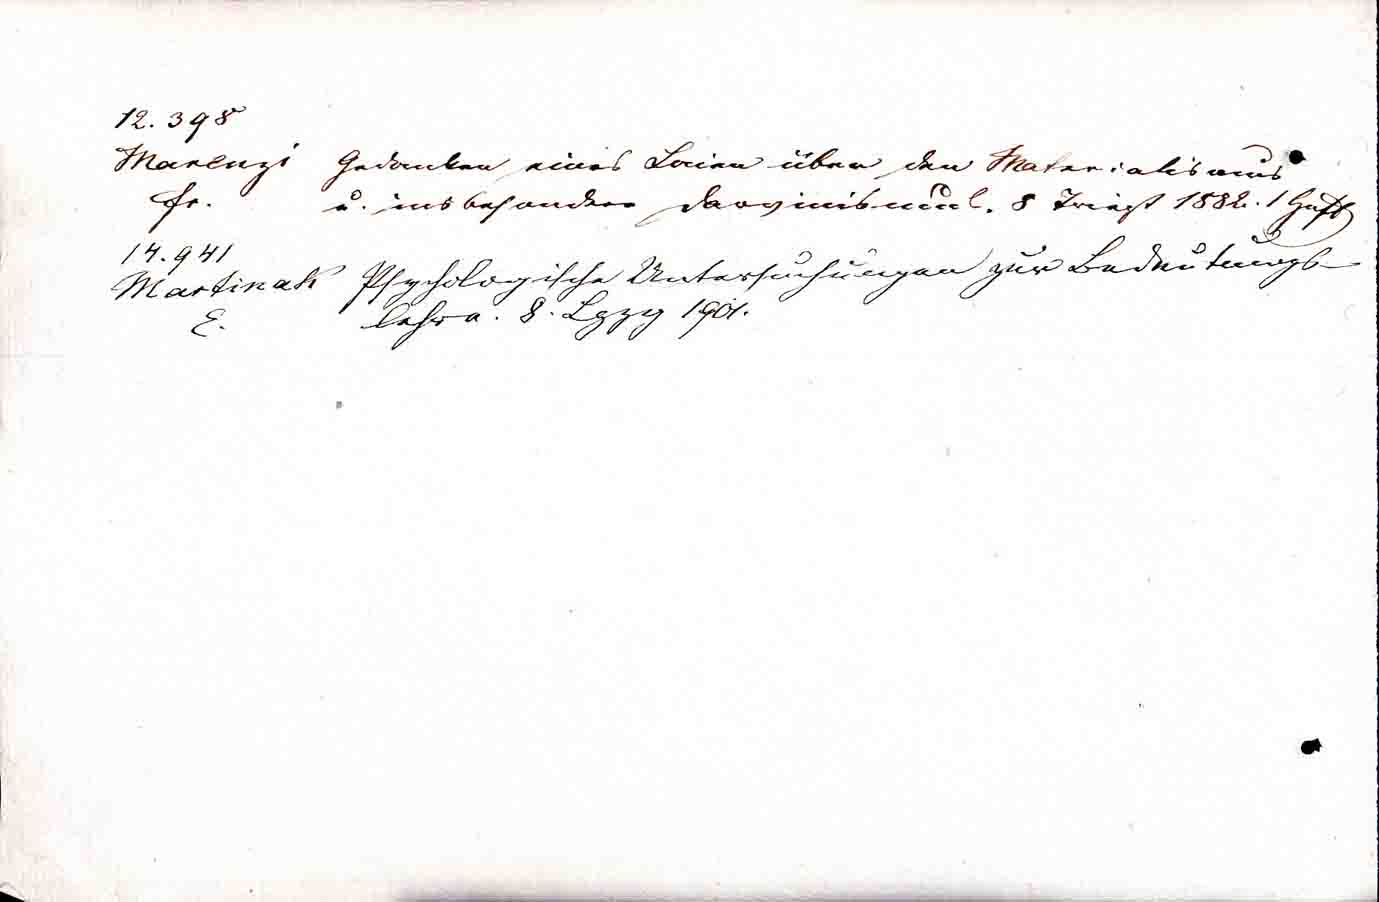 12.398
Marenzi Gedanken eines Laien über den Materialismus
Fr. u. insbesondere Darvinismus. 8 Triest 1882. 1 Heft
14.941
Martinak Psychologische Untersuchungen zur Bedeutungs-
E. lehre. 8. Lpzg 1901.